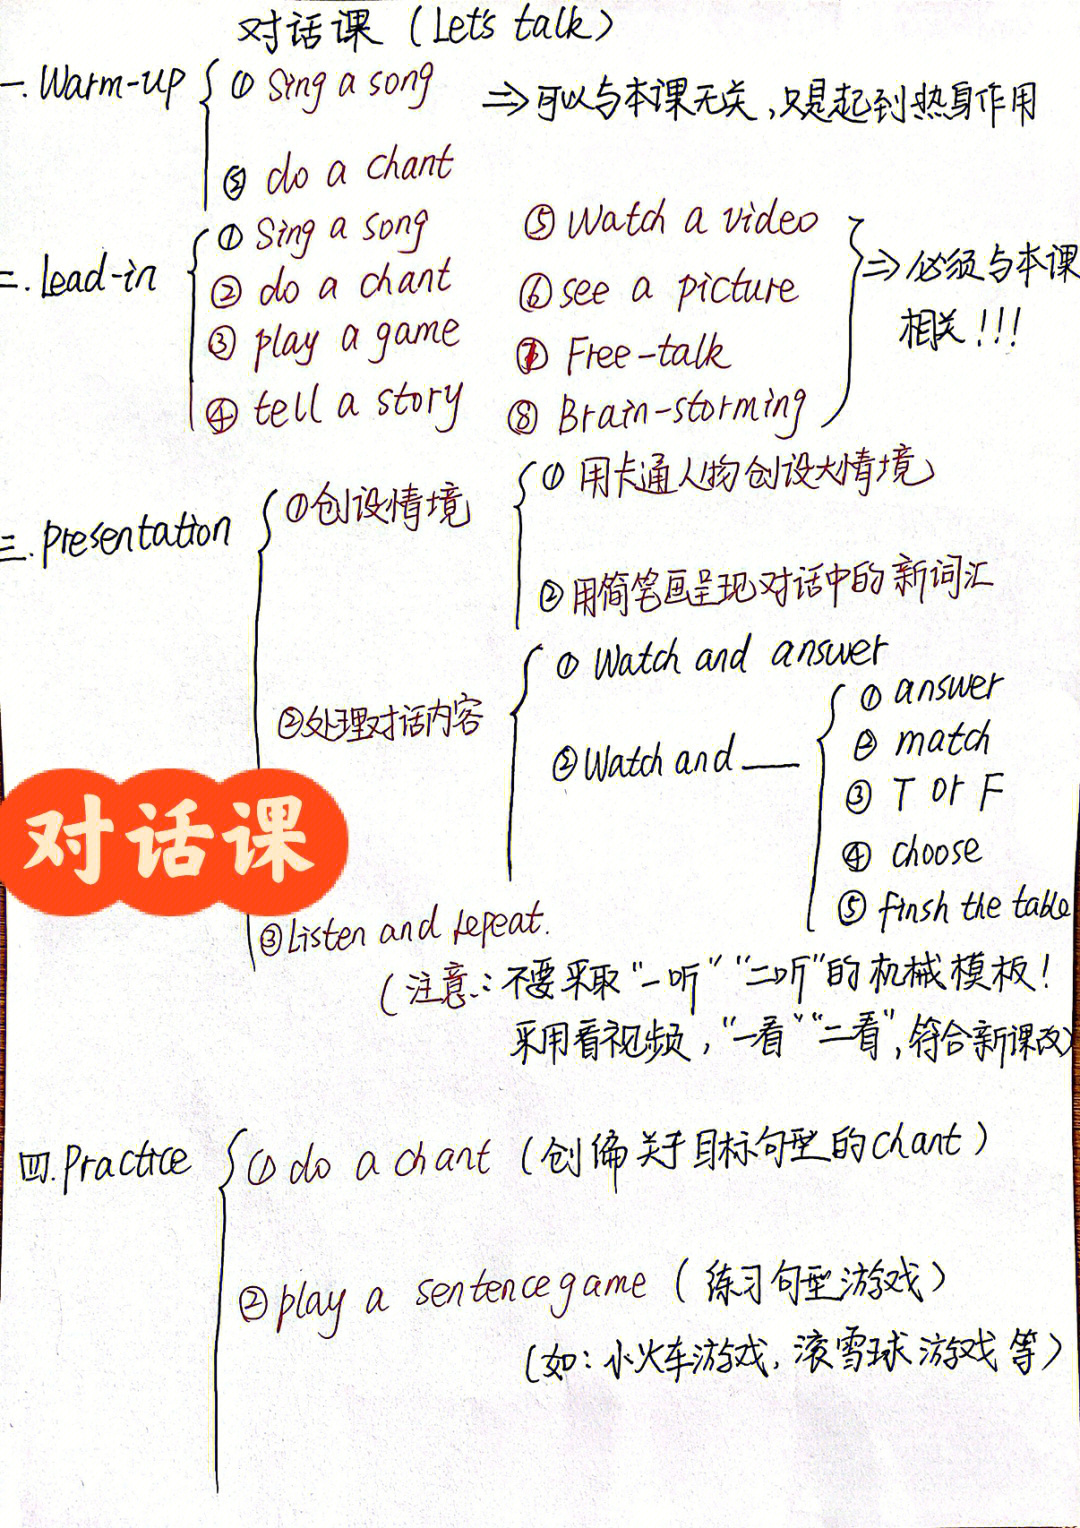 对话课 (Let's talk)
一. Warm-up ① Sing a song ⇒ 可以与本课无关, 只是起到热身作用
② do a chant
二. Lead-in ① Sing a song ⑤ Watch a video
② do a chant ⑥ see a picture ⇒ 必须与本课
③ play a game ⑦ Free-talk 相关!!!
④ tell a story ⑧ Brain-storming
三. Presentation ①创设情境 ① 用卡通人物创设大情境
② 用简笔画呈现对话中的新词汇
②处理对话内容 ① Watch and answer
② Watch and ___ ① answer
② match
③ T or F
④ choose
⑤ finsh the table
对话课
③ Listen and repeat.
(注意: 不要采取“一听”“二听”的机械模板!
采用看视频, “一看”“二看”, 符合新课改)
四. Practice ① do a chant (创编关于目标句型的chant)
② play a sentence game (练习句型游戏)
(如: 小火车游戏, 滚雪球游戏等)